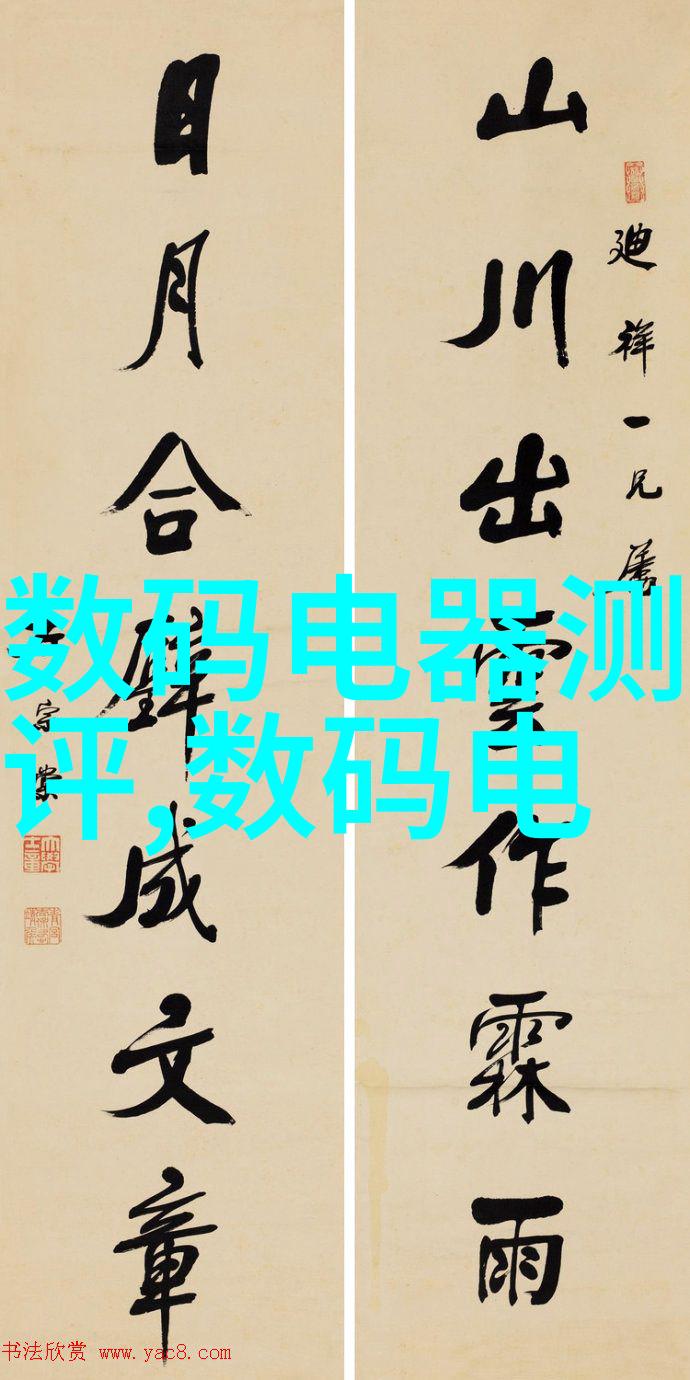 山川出雲作霖雨
廸祥一兄屬
日月合璧成文章
宗棠
数码电器测
评,数码电
书法欣赏 www.yac8.com